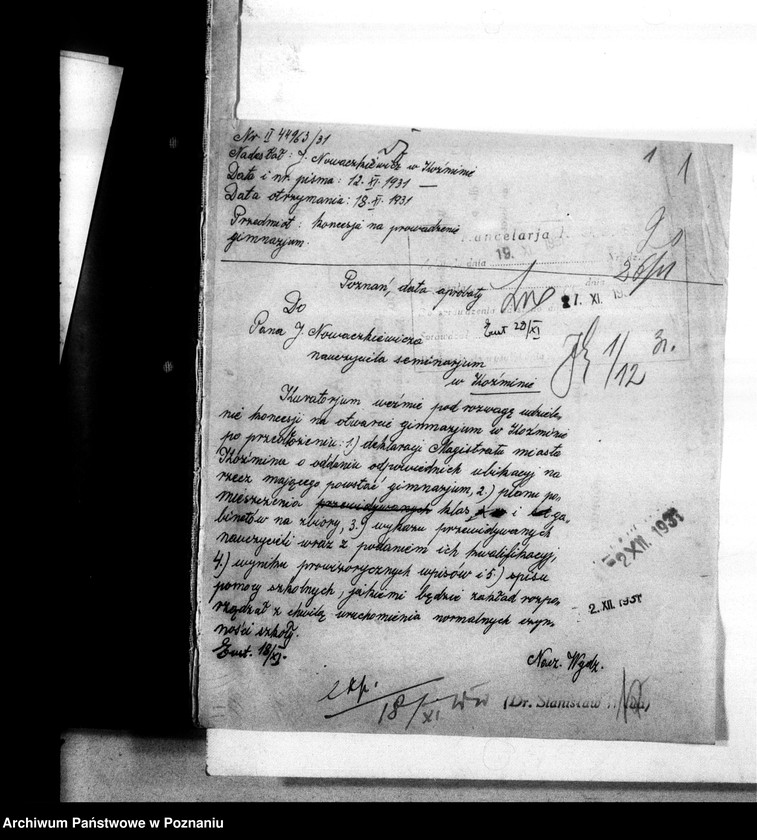 Nr II 44963/31
Nadesłał: J. Nowaczkiewicz w Koźminie
Data i nr. pisma: 12. XI. 1931 —
Data otrzymania: 18. XI. 1931
Przedmiot: koncesja na prowadzenie
gimnazjum.
1 1
Kancelarja
19.
dnia
26/XI
Poznań, data aprobaty
27. XI. 193
Do
Eut 20/XI
Pana J. Nowaczkiewicza
nauczyciela seminarjum
w Koźminie
1/12
Kuratorjum weźmie pod rozwagę udziele-
nie koncesji na otwarcie gimnazjum w Koźminie
po przedłożeniu: 1.) deklaracji Magistratu miasta
Koźmina o oddaniu odpowiednich ubikacyj na
rzecz mającego powstać gimnazjum, 2.) planu po-
mieszczenia przewidywanych klas i ga-
binetów na zbiory, 3.) wykazu przewidywanych
nauczycieli wraz z podaniem ich kwalifikacyj,
4.) wyniku prowizorycznych wpisów i 5.) spisu
pomocy szkolnych, jakiemi będzie zakład rozpo-
rządzał z chwilą uruchomienia normalnych czyn-
ności szkoły.
2 XII. 1931
2. XII. 1931
Eut. 18/XI.
Nacz. Wydz.
exp.
18/XI
(Dr. Stanisław
Archiwum Państwowe w Poznaniu